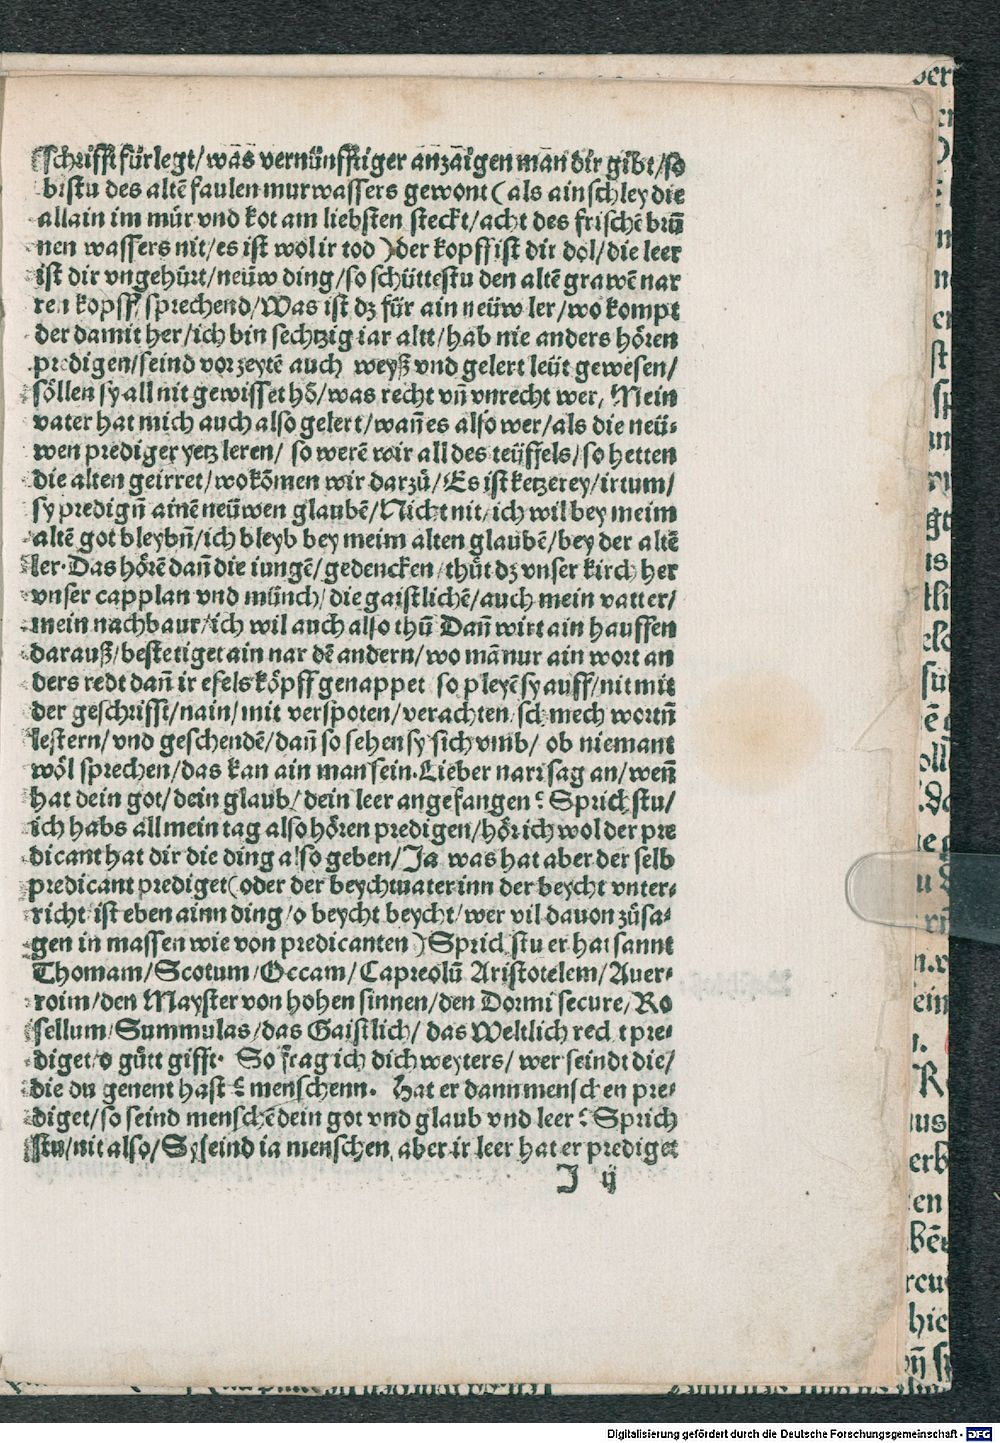 schrifft fürlegt/was vernünfftiger anzaigen man dir gibt/so
bistu des altē faulen murwassers gewont (als ain schley die
allain im mür vnd kot am liebsten steckt/acht des frischē brū
nen wassers nit/es ist wol ir tod) der kopff ist dir dol/die leer
ist dir vngehürt/neüw ding/so schüttestu den altē grawē nar
ren kopff sprechend/Was ist dz für ain neüw ler/wo kompt
der damit her/ich bin sechtzig iar altt/hab nie anders hören
predigen/seind vorzeytē auch weyß vnd gelert leüt gewesen/
söllen sy all nit gewisset hō/was recht vn̄ vnrecht wer, Mein
vater hat mich auch also gelert/wan̄ es also wer/als die neü-
wen prediger yetz leren/ so werē wir all des teüffels/so hetten
die alten geirret/wo kōmen wir darzů/Es ist ketzerey/irtum/
sy predign̄ ainē neüwen glaubē/Nicht nit/ich wil bey meim
altē got bleybn̄/ich bleyb bey meim alten glaubē/bey der altē
ler. Das hörē dan̄ die iungē/gedencken/thůt dz vnser kirch her
vnser capplan vnd münch/die gaistlichē/auch mein vatter/
mein nachbaur/ich wil auch also thů Dan̄ wirt ain hauffen
darauß/bestetiget ain nar dē andern/wo mā nur ain wort an
ders redt dan̄ ir esels köpff genappet so pleyē sy auff/nit mit
der geschrifft/nain/mit verspoten/verachten/schmech wortn̄
lestern/vnd geschendē/dan̄ so sehen sy sich vmb/ ob niemant
wöl sprechen/das kan ain man sein. Lieber narr sag an/wen̄
hat dein got/dein glaub/dein leer angefangen? Sprichstu/
ich habs all mein tag also hören predigen/hör ich wol der pre
dicant hat dir die ding also geben/Ja was hat aber der selb
predicant prediget (oder der beychtuater inn der beycht vnter-
richt ist eben ainn ding/o beycht beycht/wer vil dauon zůsa-
gen in massen wie von predicanten) Sprichstu er hat sannt
Thomam/Scotum/Occam/Capreolū Aristotelem/Auer-
roim/den Mayster von hohen sinnen/den Dormi secure/Ro
sellum/Summulas/das Gaistlich/ das Weltlich recht pre-
diget/o gůtt gifft. So frag ich dich weyters/ wer seindt die/
die du genent hast? menschenn. Hat er dann menschen pre-
diget/so seind menschē dein got vnd glaub vnd leer? Sprich
stu/nit also/Sy seind ia menschen, aber ir leer hat er prediget
J ij
Digitalisierung gefördert durch die Deutsche Forschungsgemeinschaft - DFG